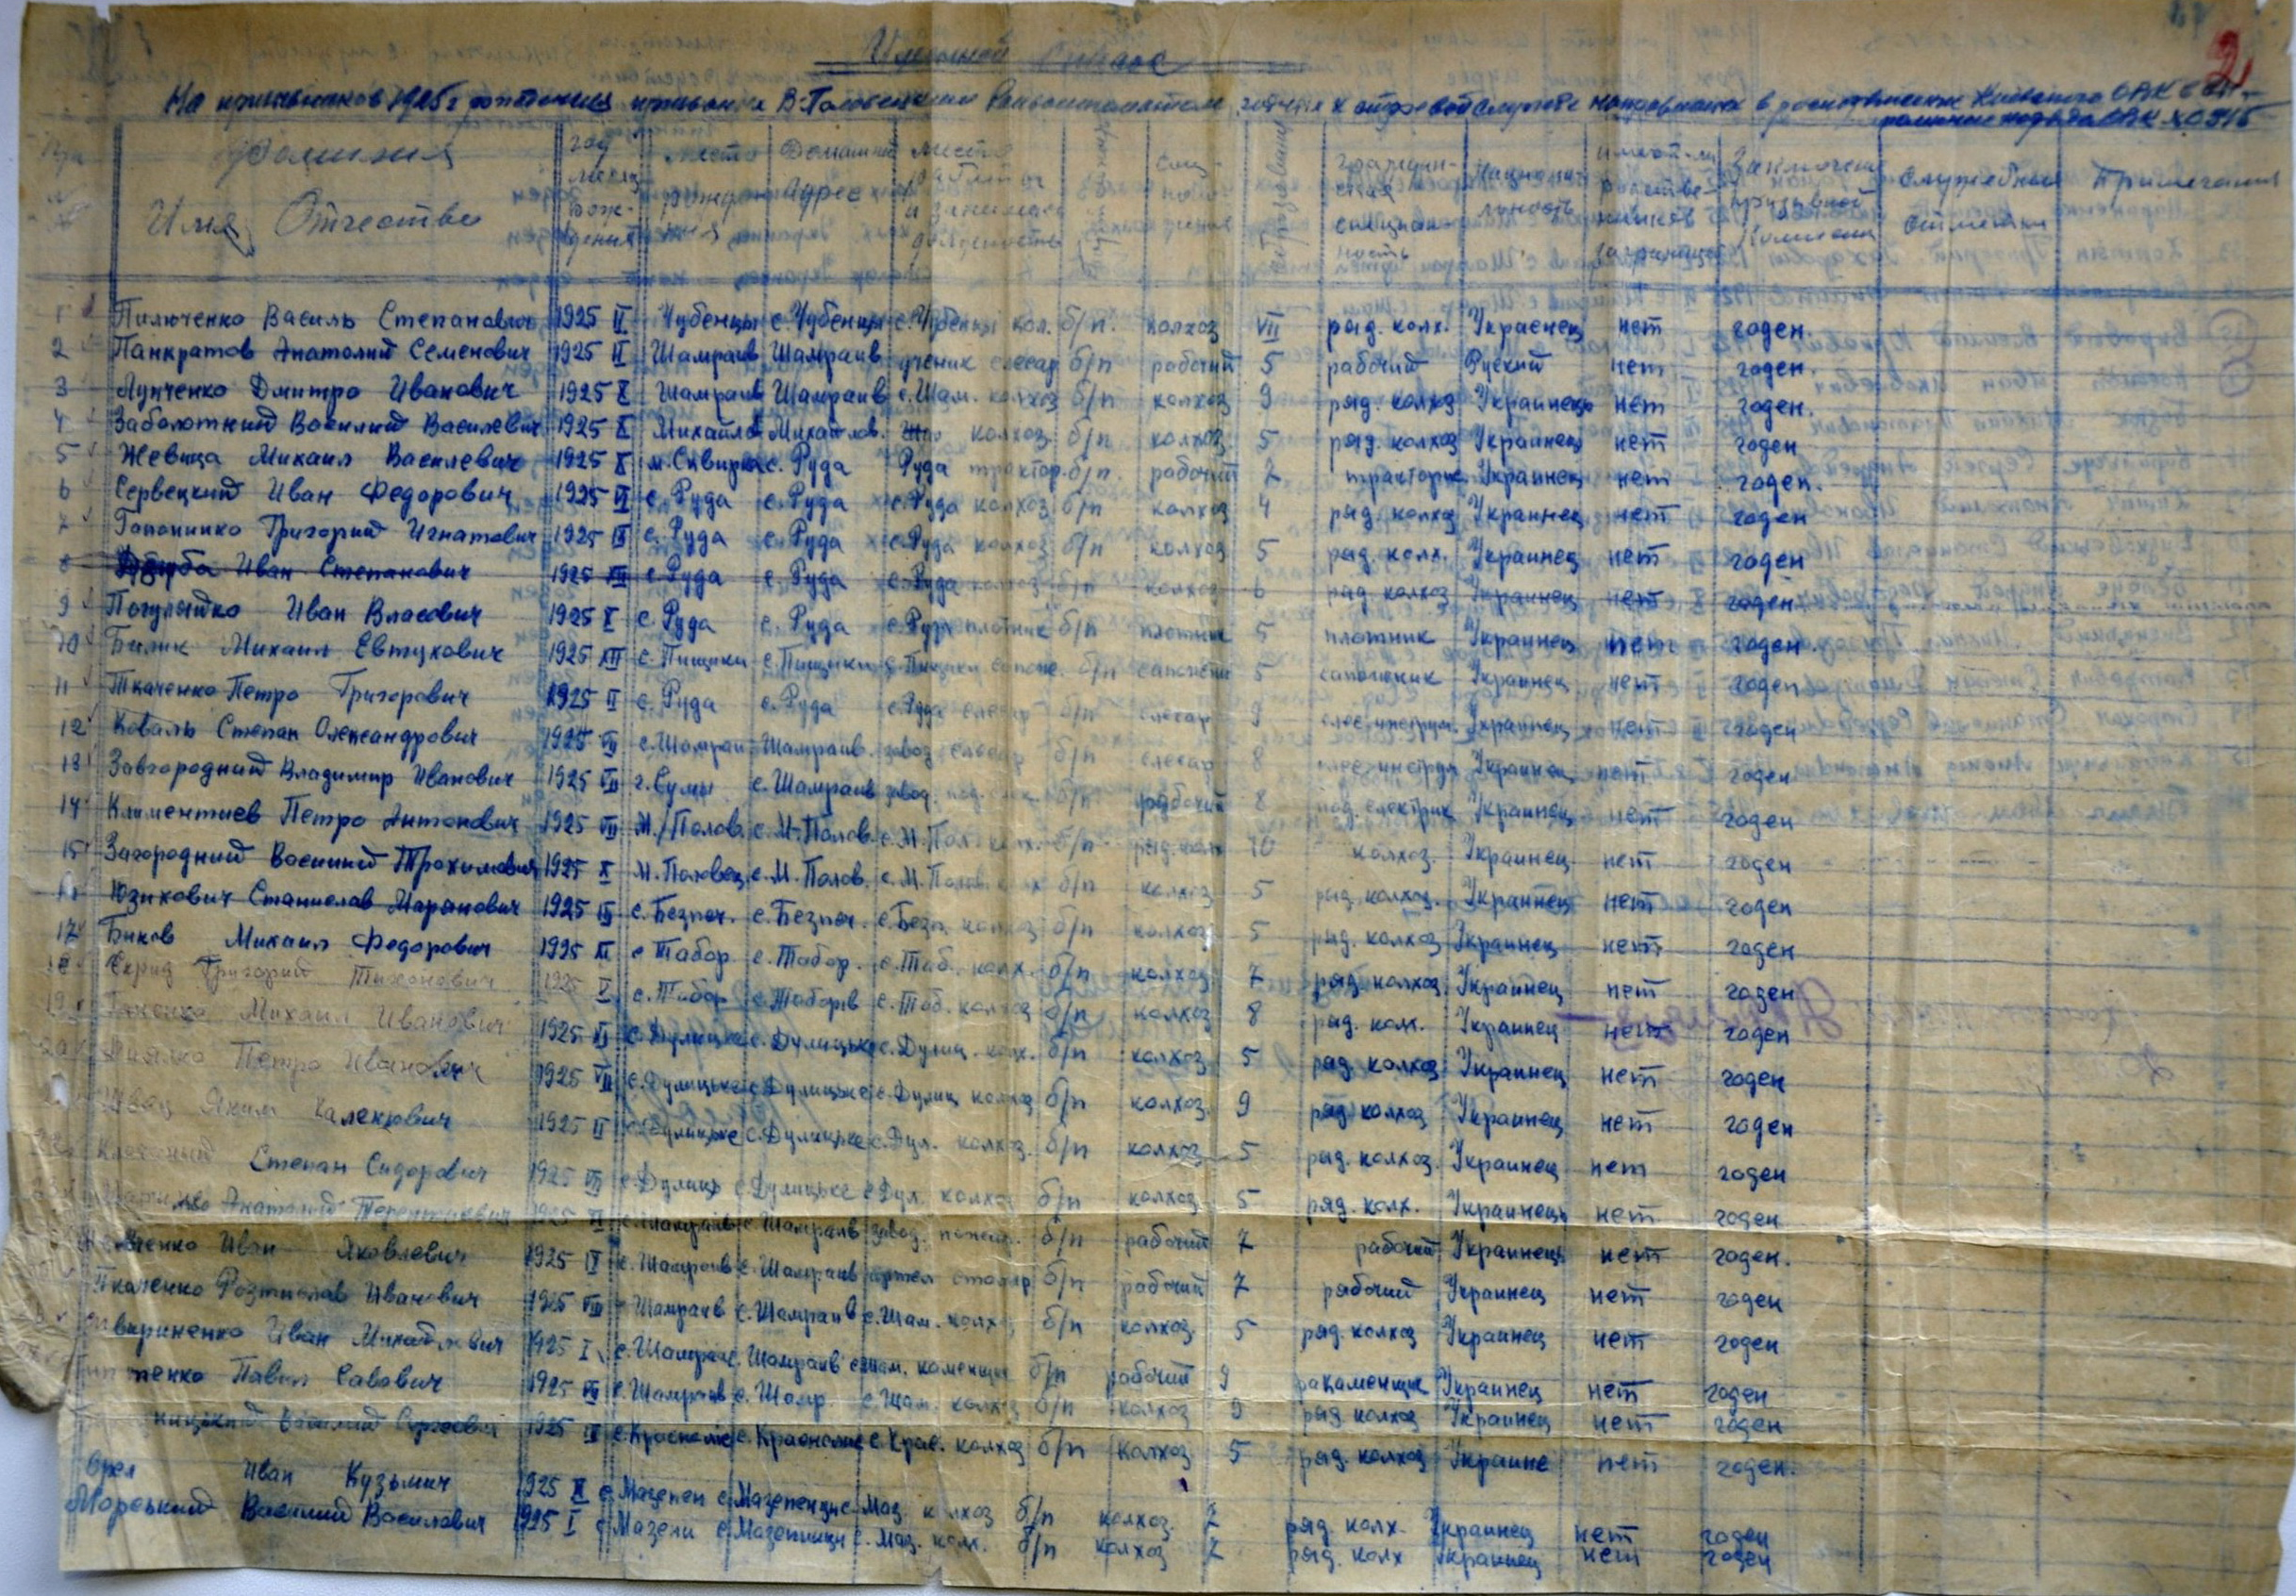 Именной список
На призывников 1925 г рождения призванных В-Половецким Райвоенкоматом, годных к строевой службе направляемых в Киевского ОВК
2
Фамилия Имя Отчество год месяц рождения место рождения Домашний адрес место работы и занимаемая должность соц. образование гражданская специальность Национальность имеют-ли родственников заграницей Заключение призывной комиссии служебные отметки Примечания
1 Пилюченко Василь Степанович 1925 II Чубенцы с. Чубенцы с. Чубенцы кол. б/п. колхоз VII ряд. колх. Украенец нет годен.
2 Панкратов Анатолий Семенович 1925 II Шамраив Шамраив ученик слесар б/п рабочий 5 рабочий Руский нет годен.
3 Лунченко Дмитро Иванович 1925 X Шамраив Шамраив с. Шам. колхоз б/п колхоз 9 ряд. колхоз Украинец нет годен.
4 Заболотний Василий Василевич 1925 X Михайлов. Михайлов. колхоз б/п колхоз 5 ряд. колхоз Украинец нет годен
5 Жевица Михаил Василевич 1925 X м. Сквира с. Руда Руда трактор. б/п. рабочий 7 тракторис Украинец нет годен.
6 Сервецкий Иван Федорович 1925 VI с. Руда с. Руда с. Руда колхоз б/п колхоз 4 ряд. колхоз Украинец нет годен
7 Гопонинко Григорий Игнатович 1925 IX с. Руда с. Руда с. Руда колхоз б/п колхоз 5 ряд. колх. Украинец нет годен
8 Иван Степанович 1925 XII с. Руда с. Руда с. Руда колхоз б/п колхоз 6 ряд. колхоз Украинец нет годен
9 Погуляйко Иван Власович 1925 X с. Руда с. Руда с. Руда плотник б/п плотник 5 плотник Украинец нет годен.
10 Билик Михаил Евтухович 1925 XII с. Пищики с. Пищики с. Пищики сапож. б/п сапожник 5 сапожник Украинец нет годен
11 Ткаченко Петро Григорович 1925 II с. Руда с. Руда с. Руда слесар б/п слесар 9 слес. инструм. Украинец нет годен
12 Коваль Степан Олександрович 1925 VII с. Шамраи Шамраив. завод слесар б/п слесар 8 слес. инструм Украинец нет годен
13 Завгородний Владимир Иванович 1925 VII г. Сумы с. Шамраив завод. б/п рабочий 8 под. електрик Украинец нет годен
14 Климентиев Петро Антонович 1925 VII М. Полов. с. М. Полов. с. М. Пол. колх. б/п ряд. колх 10 колхоз. Украинец нет годен
15 Загородний Василий Трохимович 1925 X М. Половец. с. М. Полов. с. М. Полов. колх б/п колхоз 5 ряд. колхоз. Украинец нет годен
16 Юзикович Станислав Марянович 1925 IX с. Безпеч. с. Безпеч. с. Безп. колхоз б/п колхоз 5 ряд. колхоз Украинец нет годен
17 Биков Михаил Федорович 1925 XI с Табор. с. Табор. с. Таб. колх. б/п колхоз 7 ряд. колхоз Украинец нет годен
18 Григорий Тихонович 1925 V с. Табор с. Таборів с. Таб. колхоз б/п колхоз 8 ряд. колх. Украинец нет годен
19 Михаил Иванович 1925 II с. Дулицьке с. Дулицьке с. Дулиц. колх. б/п колхоз 5 ряд. колхоз Украинец нет годен
20 Петро Иванович 1925 VII с. Дулицьке с. Дулицьке с. Дулиц колхоз б/п колхоз. 9 ряд. колхоз Украинец нет годен
Швец Яким 1925 II с. Дулицьке с. Дулицьке с. Дул. колхоз. б/п колхоз 5 ряд. колхоз. Украинец нет годен
Степан Сидорович 1925 VII с. Дулицьк с. Дулицьке с Дул. колхоз б/п колхоз 5 ряд. колх. Украинец нет годен
Анатолий Терентиевич 1925 с. Шамраив с. Шамраив завод. б/п рабочий 7 рабочий Украинец нет годен.
Иван Яковлевич 1925 IX с. Шамраив с. Шамраив артел столяр б/п рабочий 7 рабочий Украинец нет годен
Ткаченко Розтислав Иванович 1925 VIII с Шамраив с. Шамраив с. Шам. колх б/п колхоз. 5 ряд. колхоз Украинец нет годен
Иван Михайлович 1925 I с. Шамраив с. Шамраив с. Шам. каменщик б/п рабочий 9 каменщик Украинец нет годен
Павел Савович 1925 VII с. Шамраив с. Шамр. с. Шам. колхоз б/п колхоз 9 ряд. колхоз Украинец нет годен
Василий 1925 IX с. Красноліс с. Краснолис с. Крас. колхоз б/п колхоз. 5 ряд. колхоз Украине нет годен.
Орел Иван Кузьмич 1925 X с. Мазепен с. Мазепенци с. Маз. колхоз б/п колхоз. 7 ряд. колх. Украинец нет годен
Морський Василий Василович 1925 I с Мазепи с. Мазепинци с. Маз. колх. б/п колхоз 7 ряд. колх Украинец нет годен